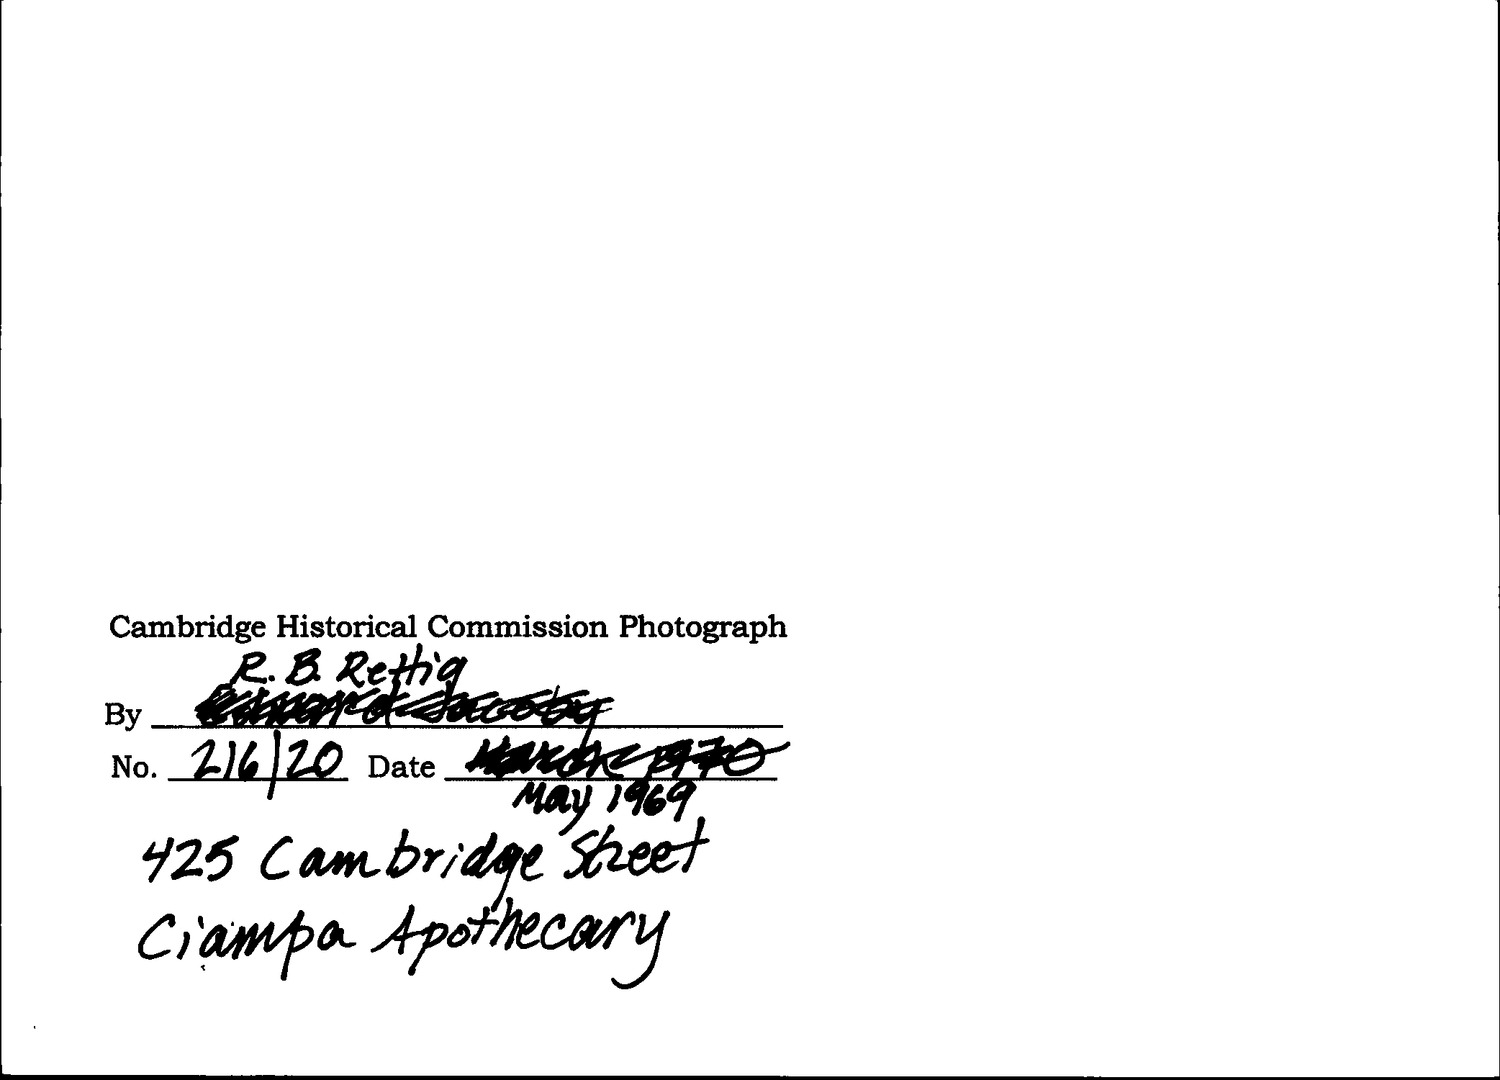 Cambridge Historical Commission Photograph
R. B. Rettig
By
No. 216/20 Date March 1970
May 1969
425 Cambridge Street
Ciampa Apothecary